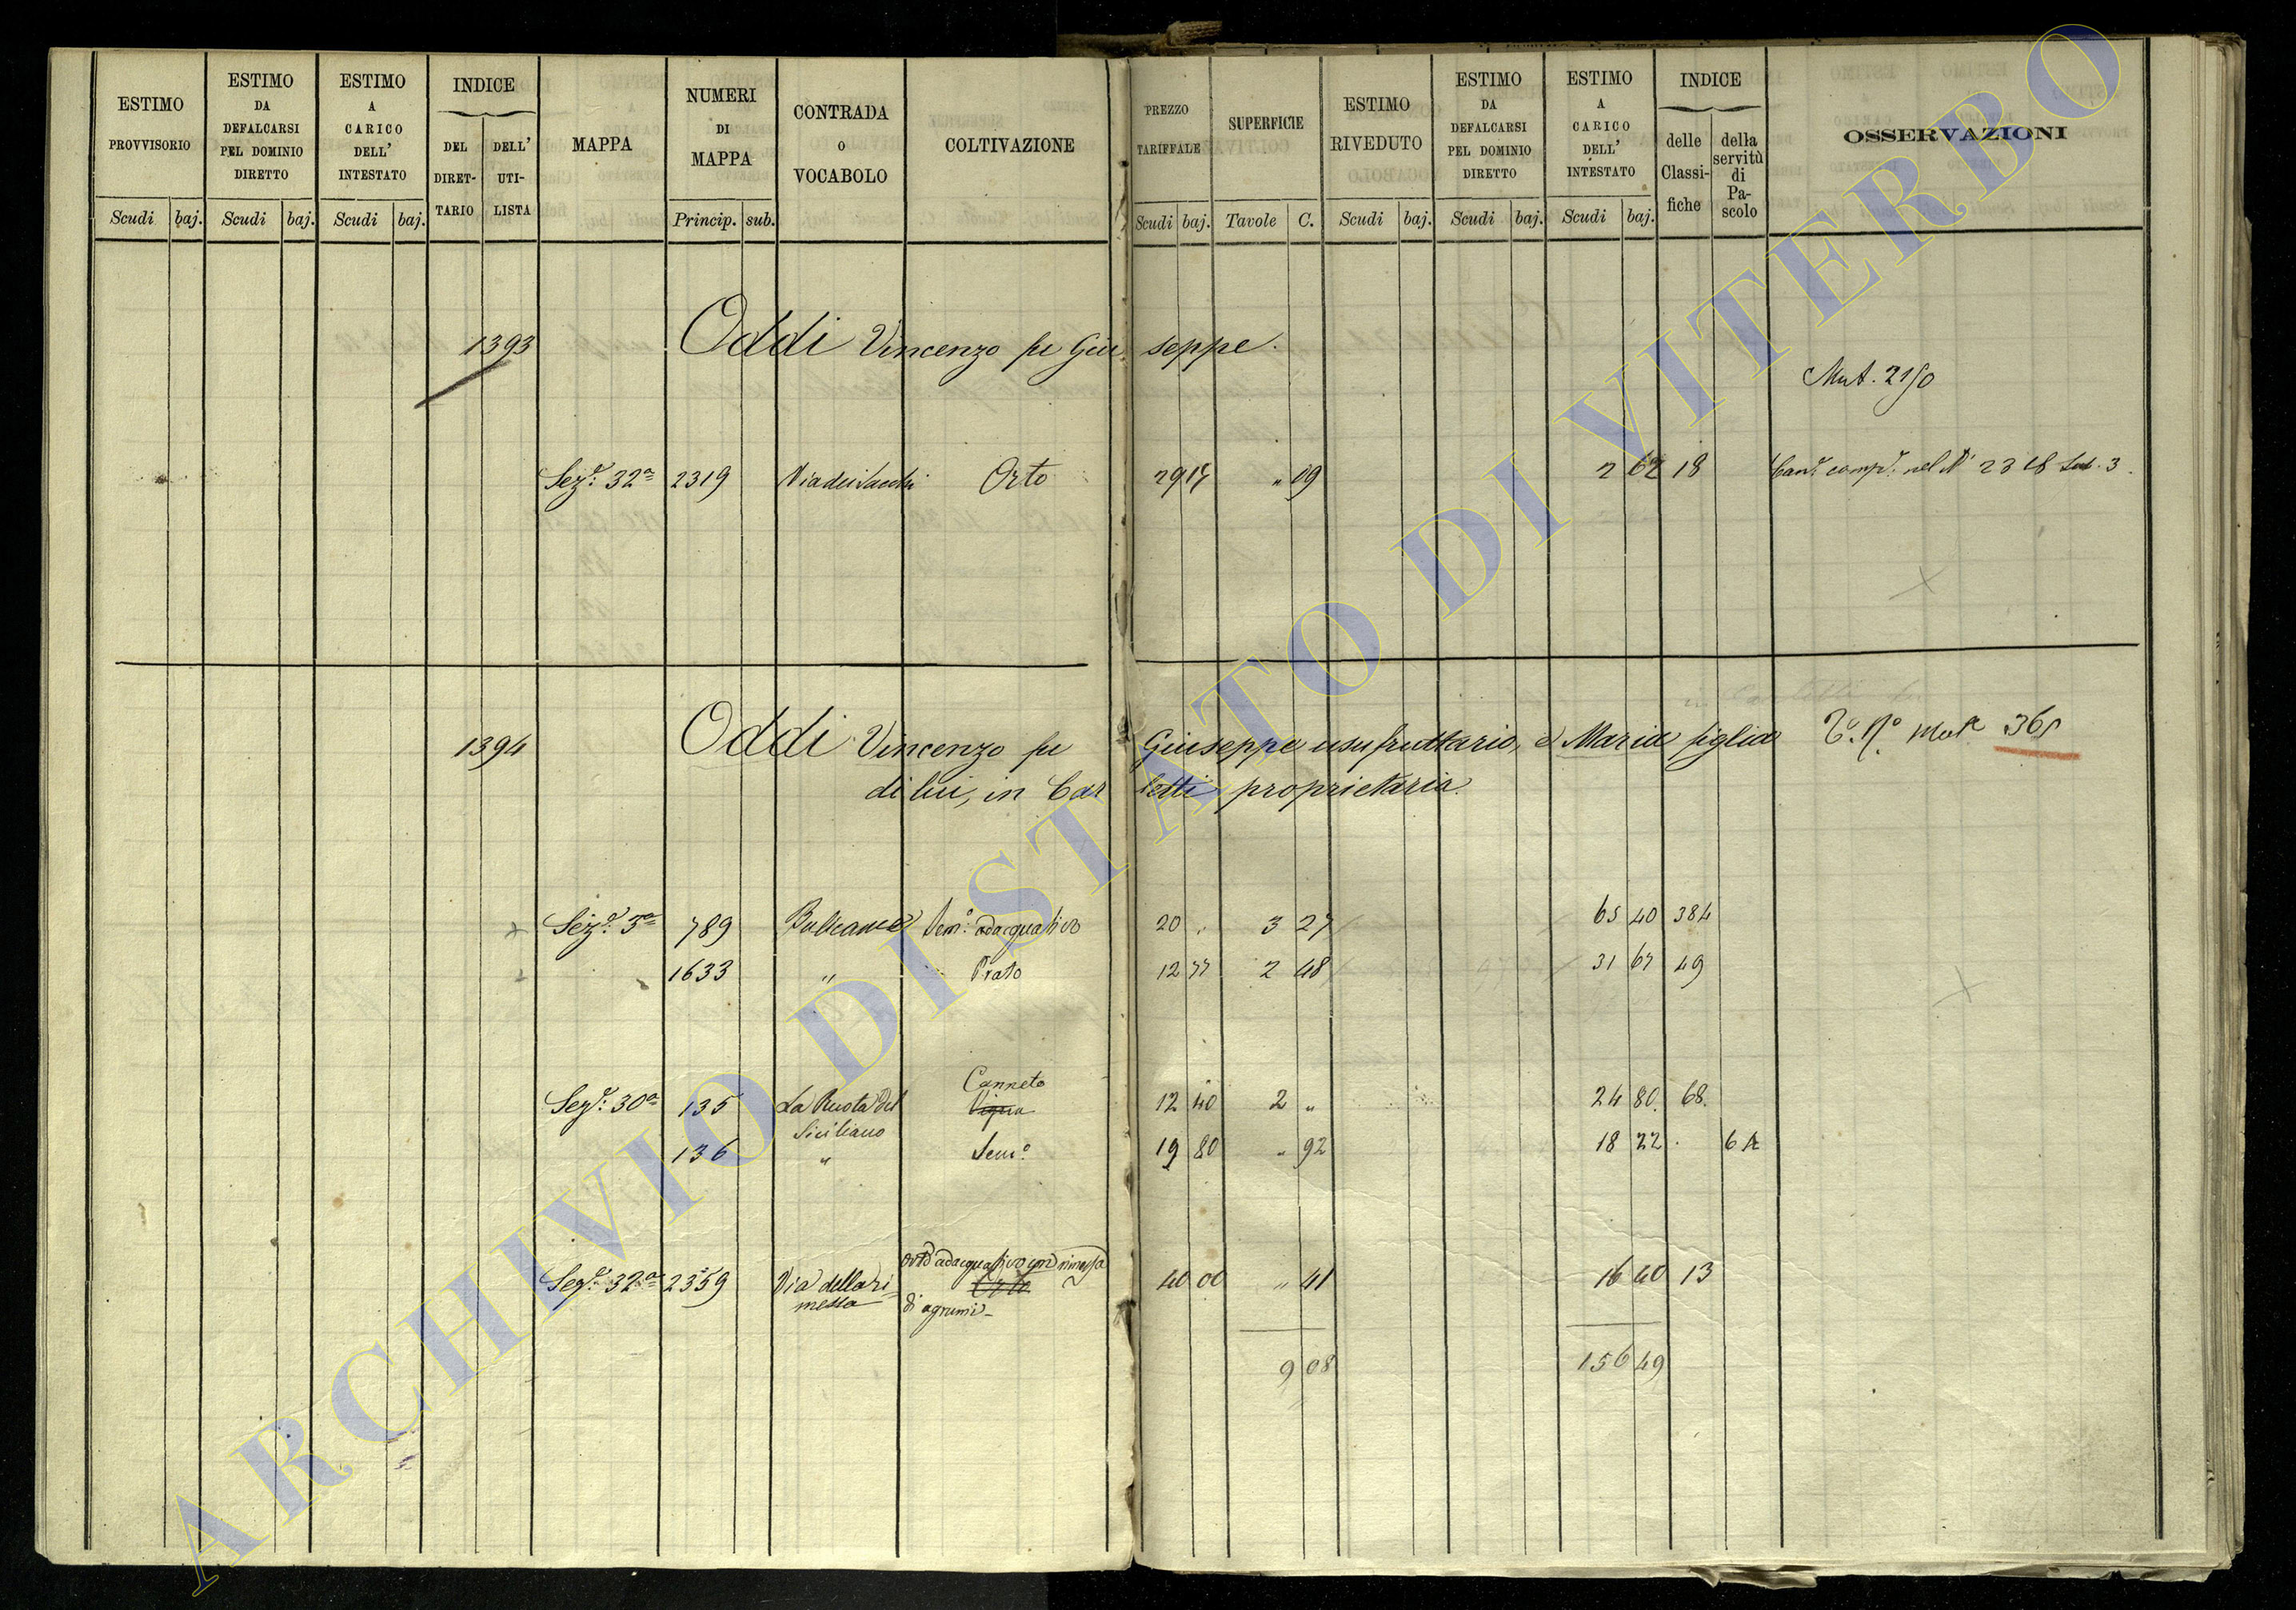 ESTIMO PROVVISORIO Scudi baj.
ESTIMO DA DEFALCARSI PEL DOMINIO DIRETTO Scudi baj.
ESTIMO A CARICO DELL' INTESTATO Scudi baj.
INDICE DEL DIRET-TARIO DELL' UTI-LISTA
MAPPA
NUMERI DI MAPPA Princip. sub.
CONTRADA O VOCABOLO
COLTIVAZIONE
PREZZO TARIFFALE Scudi baj.
SUPERFICIE Tavole C.
ESTIMO RIVEDUTO Scudi baj.
ESTIMO DA DEFALCARSI PEL DOMINIO DIRETTO Scudi baj.
ESTIMO A CARICO DELL' INTESTATO Scudi baj.
INDICE delle Classi-fiche della servitù di Pa-scolo
OSSERVAZIONI
1393 Oddi Vincenzo fu Giu seppe.
Mut. 2150
Sez.e 32a 2319 Via dei Orto 29 " 09 2 62 18 nel N° 2318 sub. 3.
1394 Oddi Vincenzo fu Giuseppe usufruttario, e Maria figlia
di lui, in Car letti proprietaria.
Sez.e 3a 789 Sem.o adacquativo 20 " 3 27 65 40 384
1633 " Prato 12 77 2 48 31 67 49
Canneto
Sez.e 30a 135 La Ruota del Vigna 12 40 2 " 24 80 68.
Siciliano
136 " Sem.o 19 80 " 92 18 22 6
Orto adacquativo con rimessa
Sez.e 32a 2359 Via della ri= Orto 40 00 " 41 16 40 13
messa di agrumi
9 08 156 49
ARCHIVIO DI STATO DI VITERBO